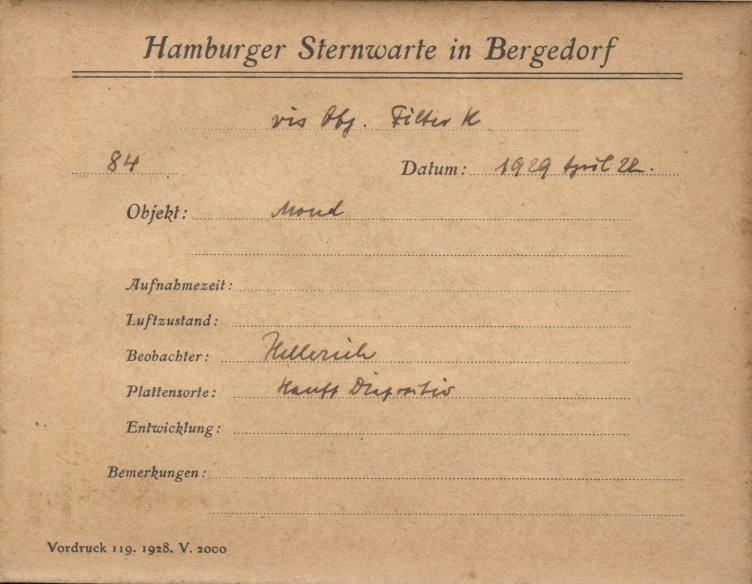 Hamburger Sternwarte in Bergedorf
vis Obj. Filter K
84 Datum: 1929 April 22.
Objekt: Mond
Aufnahmezeit:
Luftzustand:
Beobachter: Hellerich
Plattensorte: Hauff Diapositiv
Entwicklung:
Bemerkungen:
Vordruck 119. 1928. V. 2000